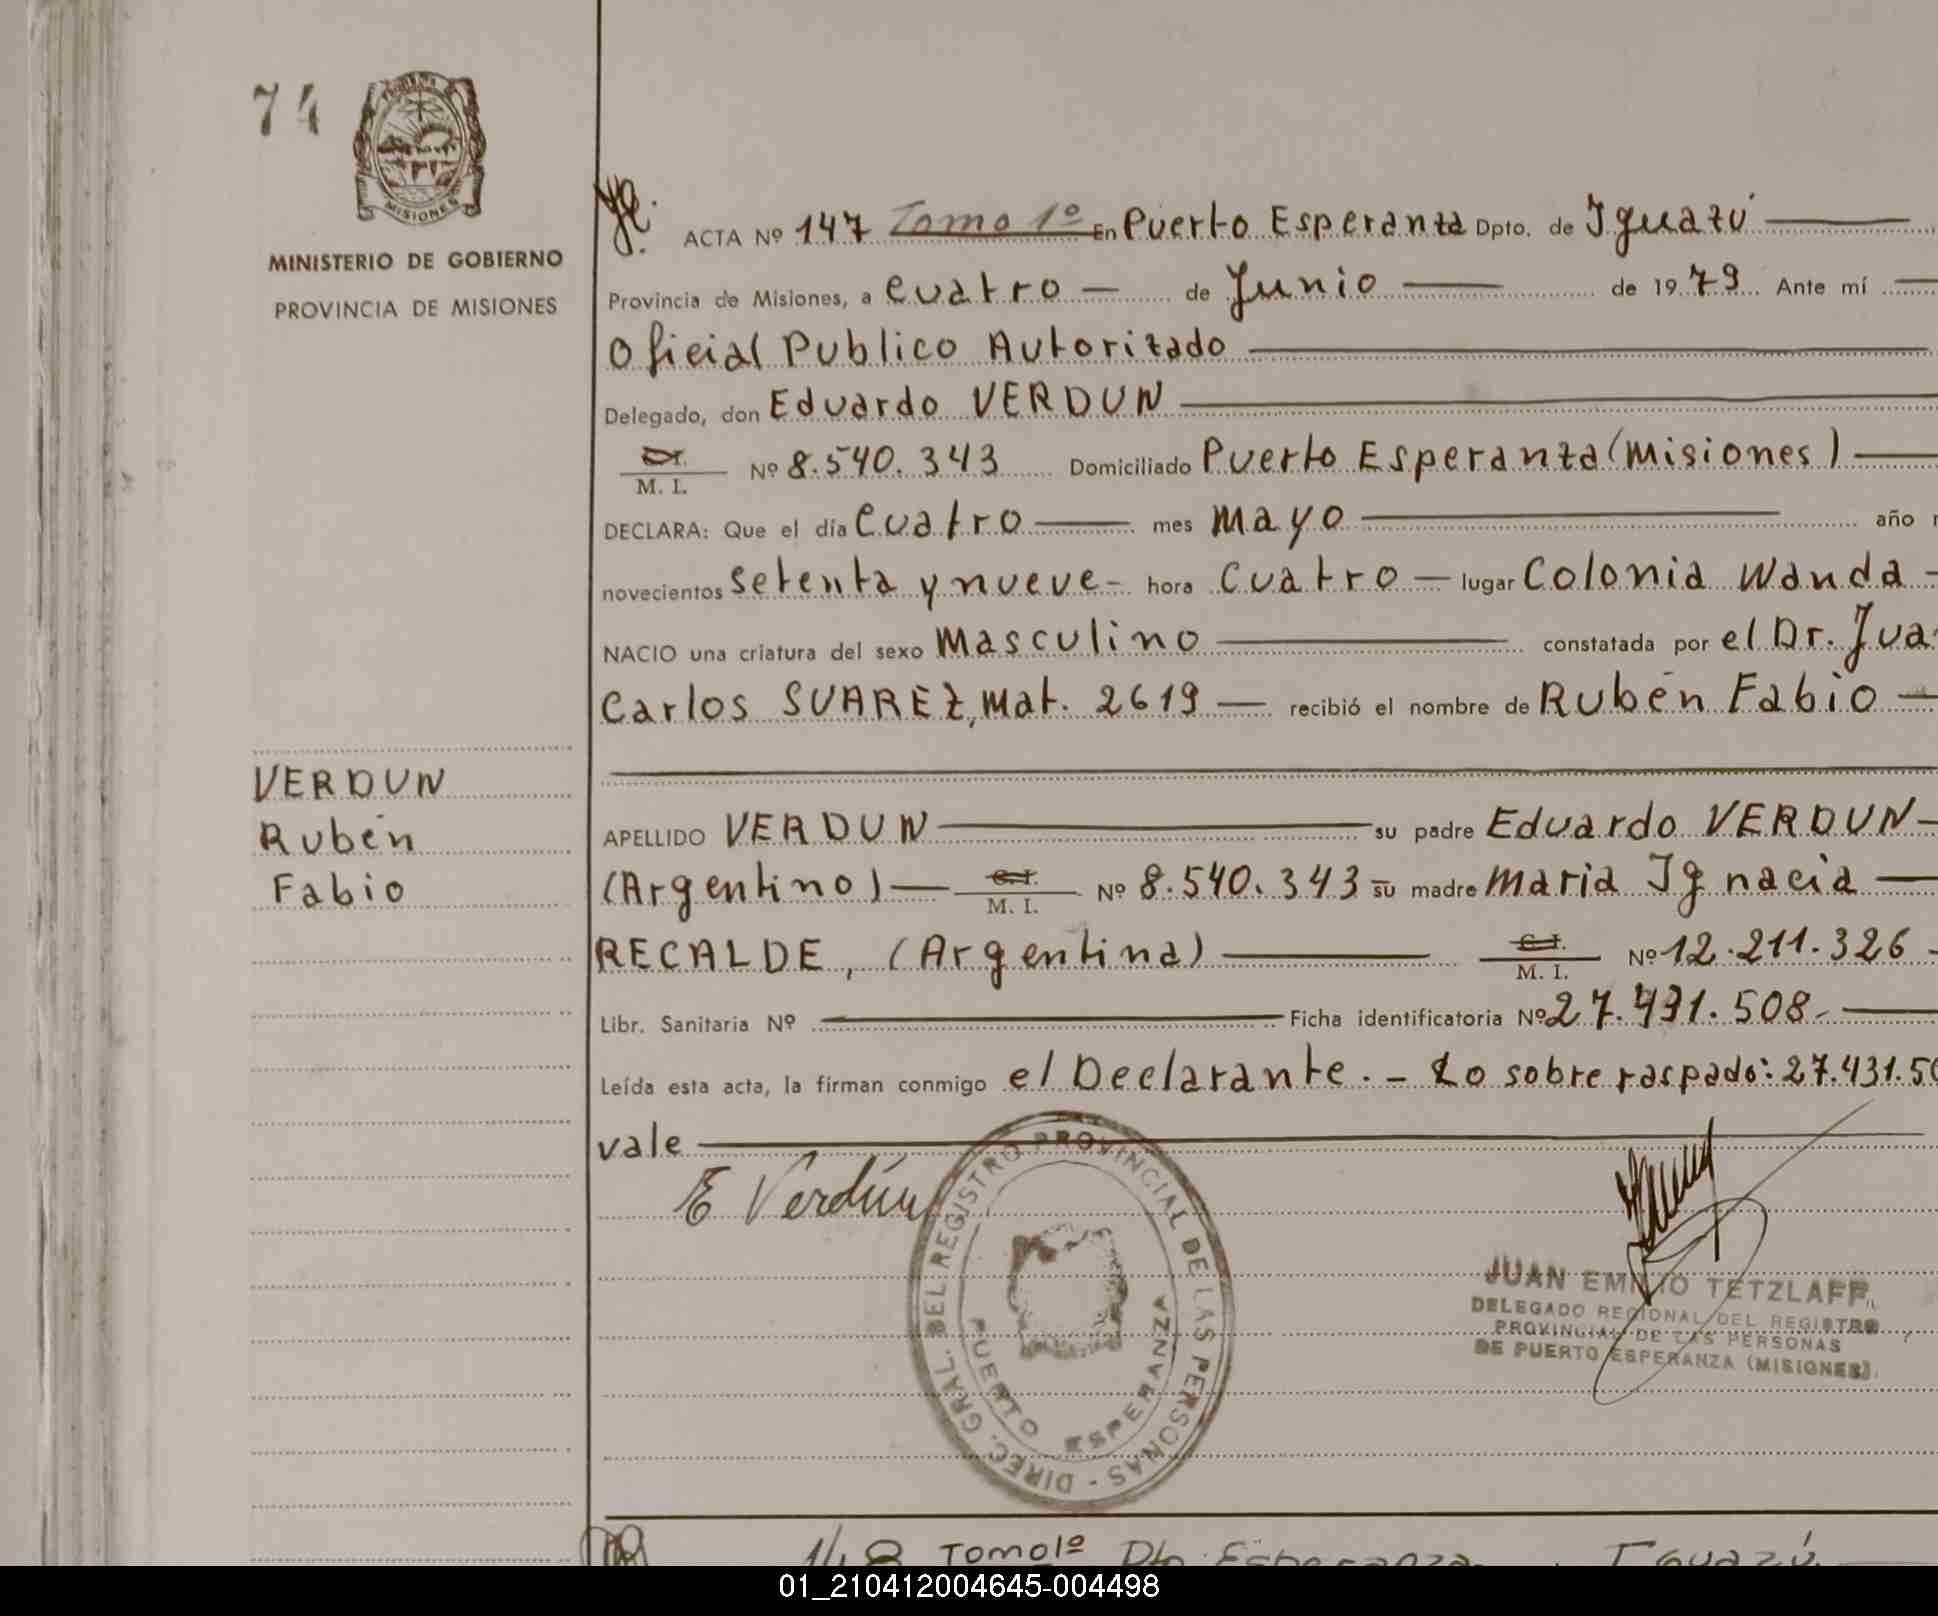 74
MISIONES
MINISTERIO DE GOBIERNO
PROVINCIA DE MISIONES
ACTA Nº 147 Tomo 1º En Puerto Esperanza Dpto. de Iguazú
Provincia de Misiones, a cuatro — de Junio — de 1979 Ante mí —
Oficial Publico Autorizado
Delegado, don Eduardo VERDUN
C.I. M. I. Nº 8.540.343 Domiciliado Puerto Esperanza (Misiones)
DECLARA: Que el día cuatro — mes mayo — año
novecientos setenta y nueve - hora cuatro — lugar Colonia Wanda -
NACIO una criatura del sexo Masculino — constatada por el Dr. Jua
Carlos SUAREZ, Mat. 2619 — recibió el nombre de Rubén Fabio —
VERDUN
Rubén
Fabio
APELLIDO VERDUN — su padre Eduardo VERDUN -
(Argentino) — C.I. M. I. Nº 8.540.343 su madre Maria Ignacia —
RECALDE, (Argentina) — C.I. M. I. Nº 12.211.326 -
Libr. Sanitaria Nº — Ficha identificatoria Nº 27.431.508.-
Leída esta acta, la firman conmigo el Declarante. - Lo sobre raspado: 27.431.50
vale
E Verdún
DIREC. GRAL. DEL REGISTRO PROVINCIAL DE LAS PERSONAS -
PUERTO ESPERANZA
JUAN EMILIO TETZLAFF
DELEGADO REGIONAL DEL REGISTRO
PROVINCIAL DE LAS PERSONAS
DE PUERTO ESPERANZA (MISIONES)
148 Tomo 1º Pto. Esperanza Iguazú
01_210412004645-004498